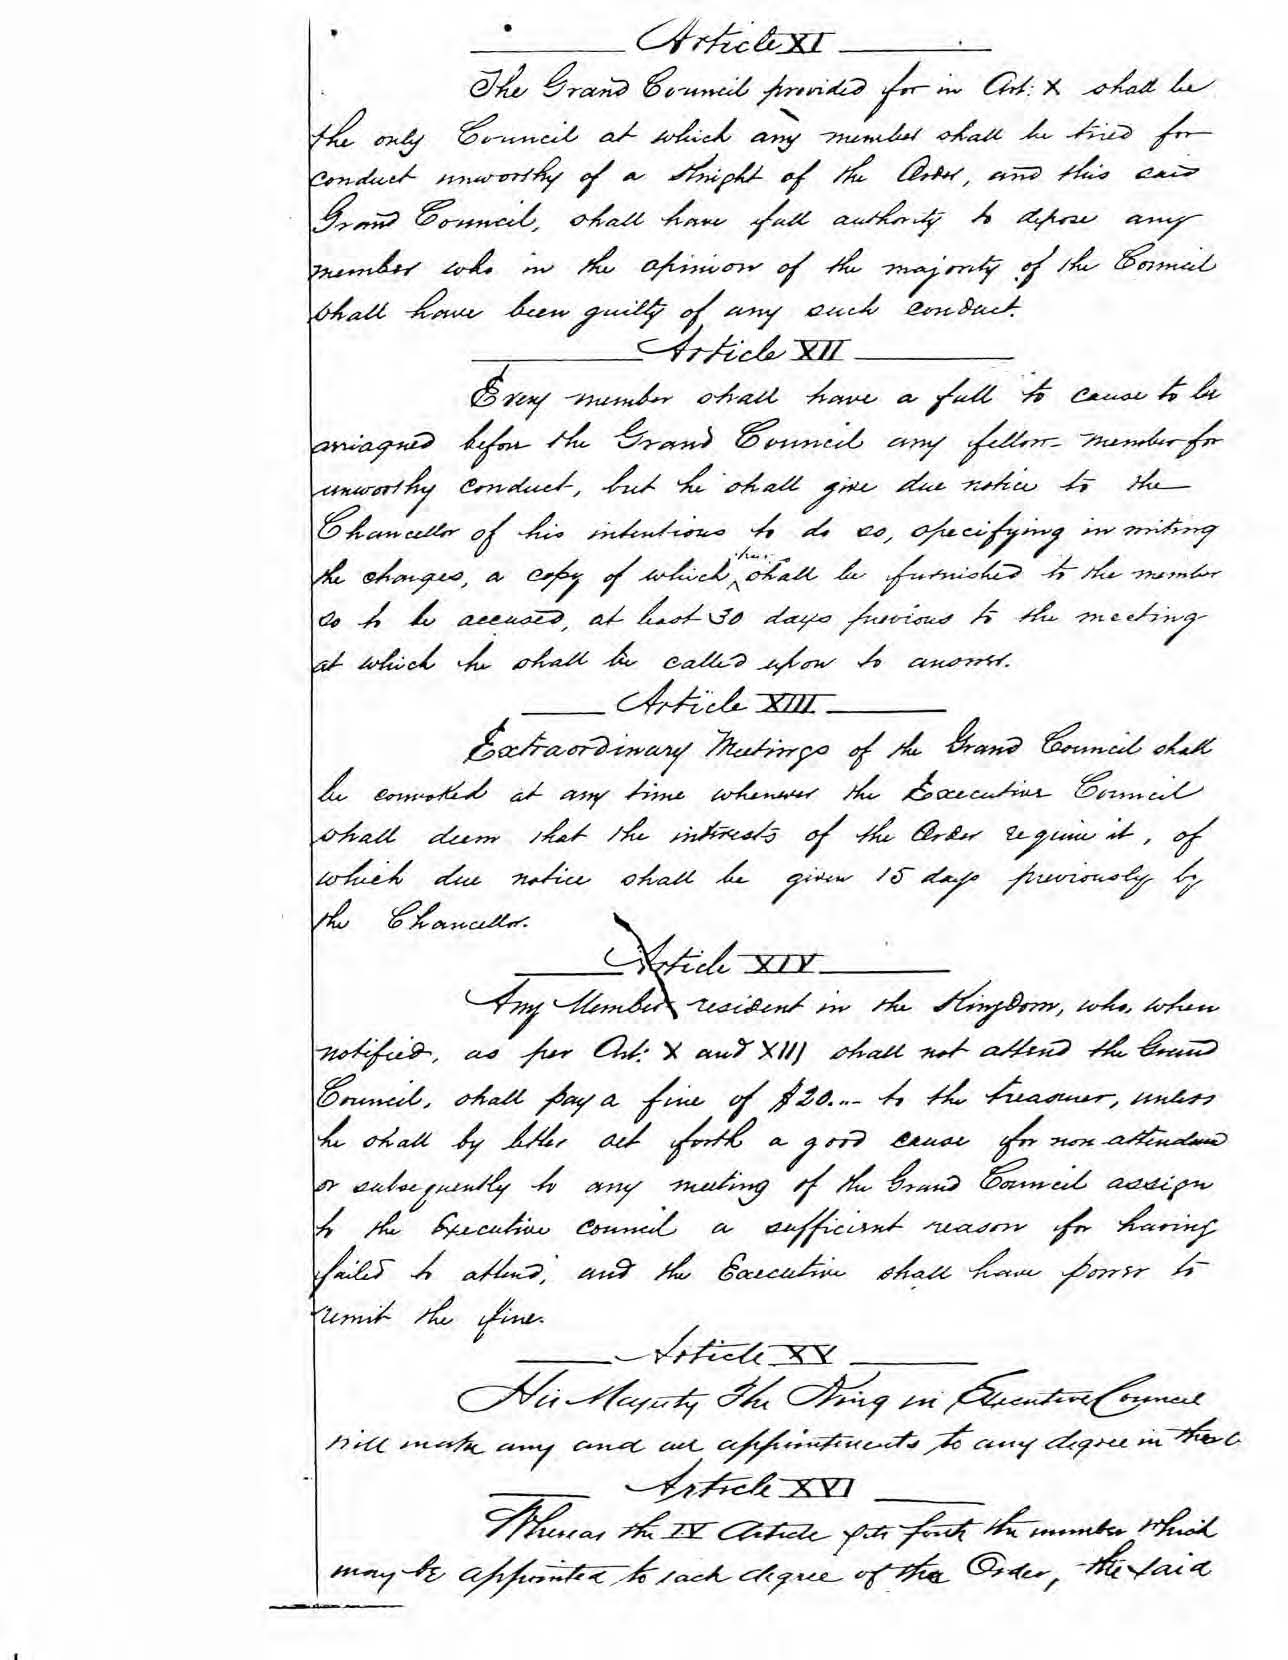 Article XI
The Grand Council provided for in Art: X shall be
the only Council at which any member shall be tried for
conduct unworthy of a Knight of the Order, and this said
Grand Council, shall have full authority to depose any
member who in the opinion of the majority of the Council
shall have been guilty of any such conduct.
Article XII
Every member shall have a full to cause to be
arriagned before the Grand Council any fellow-member for
unworthy conduct, but he shall give due notice to the
Chancellor of his intentions to do so, specifying in writing
the charges, a copy of which shall be furnished to the member
so to be accused, at least 30 days previous to the meeting
at which he shall be called upon to answer.
Article XIII
Extraordinary Meetings of the Grand Council shall
be convoked at any time whenever the Executive Council
shall deem that the interests of the Order require it, of
which due notice shall be given 15 days previously by
the Chancellor.
Article XIV
Any Member resident in the Kingdom, who, when
notified, as per Art: X and XIII shall not attend the Grand
Council, shall pay a fine of $20.-- to the treasurer, unless
he shall by letter set forth a good cause for non-attendance
or subsequently to any meeting of the Grand Council assign
to the Executive council a sufficient reason for having
failed to attend, and the Executive shall have power to
remit the fine.
Article XV
His Majesty The King in Executive Council
will make any and all appointments to any degree in the
Article XVI
Whereas the IV Article sets forth the number which
may be appointed to each degree of the Order, the said